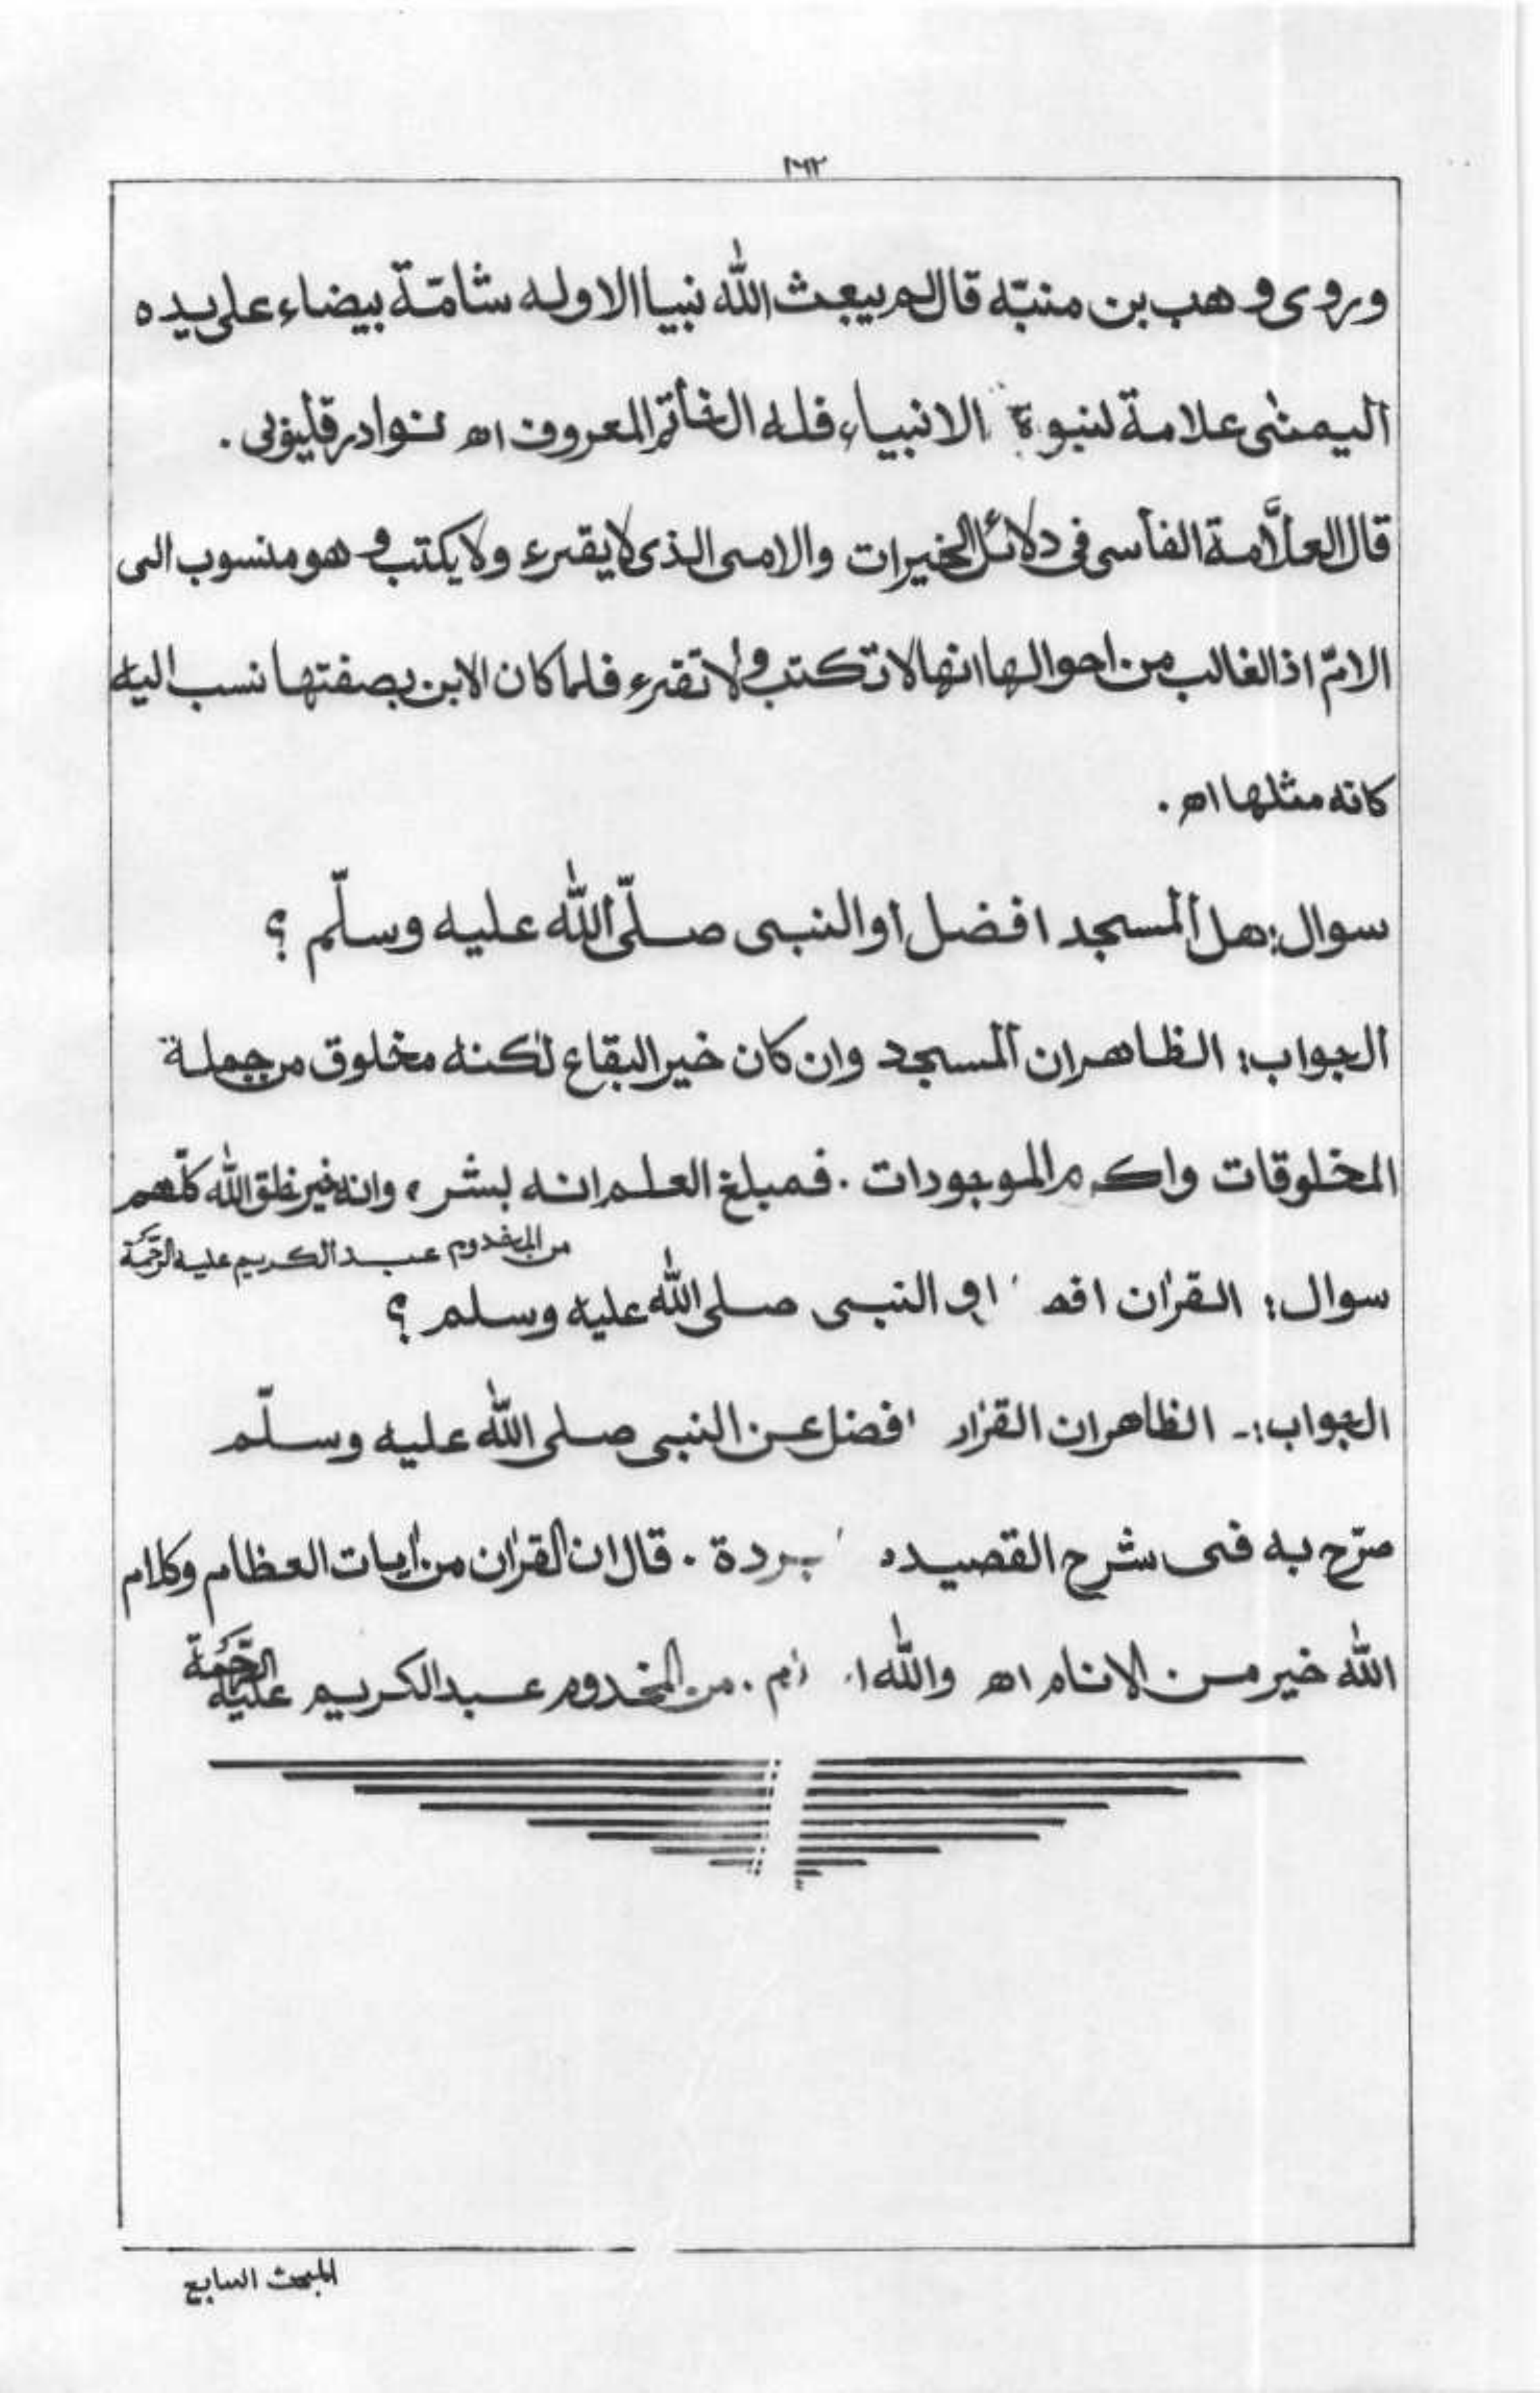 وروى وهب بن منبّه قال لم يبعث الله نبيا الا وله شامّة بيضاء على يده
اليمنى علامة لنبوة الانبياء فله الخاتم المعروف اه نوادر قليوبى .
قال العلّامة الفأسى فى دلائل الخيرات والامى الذى لا يقرء ولا يكتب وهو منسوب الى
الامّ اذ الغالب من احوالها انها لا تكتب ولا تقرء فلما كان الابن بصفتها نسب اليه
كانه مثلها اه .
سوال: هل المسجد افضل او النبى صلّى الله عليه وسلّم ؟
الجواب: الظاهر ان المسجد وان كان خير البقاع لكنه مخلوق من جملة
المخلوقات واكرم الموجودات . فمبلغ العلم انه بشر ، وانه خير خلق الله كلّهم
من المخدوم عبد الكريم عليه الرّحمة
سوال: القرٰان او النبى صلى الله عليه وسلم ؟
الجواب:- الظاهر ان القرٰان افضل عن النبى صلى الله عليه وسلّم
صرّح به فى شرح القصيده بردة . قال ان القرٰان من اٰيات العظام وكلام
الله خير من الانام اه والله . من المخدوم عبد الكريم عليه الرّحمة
المبحث السابع